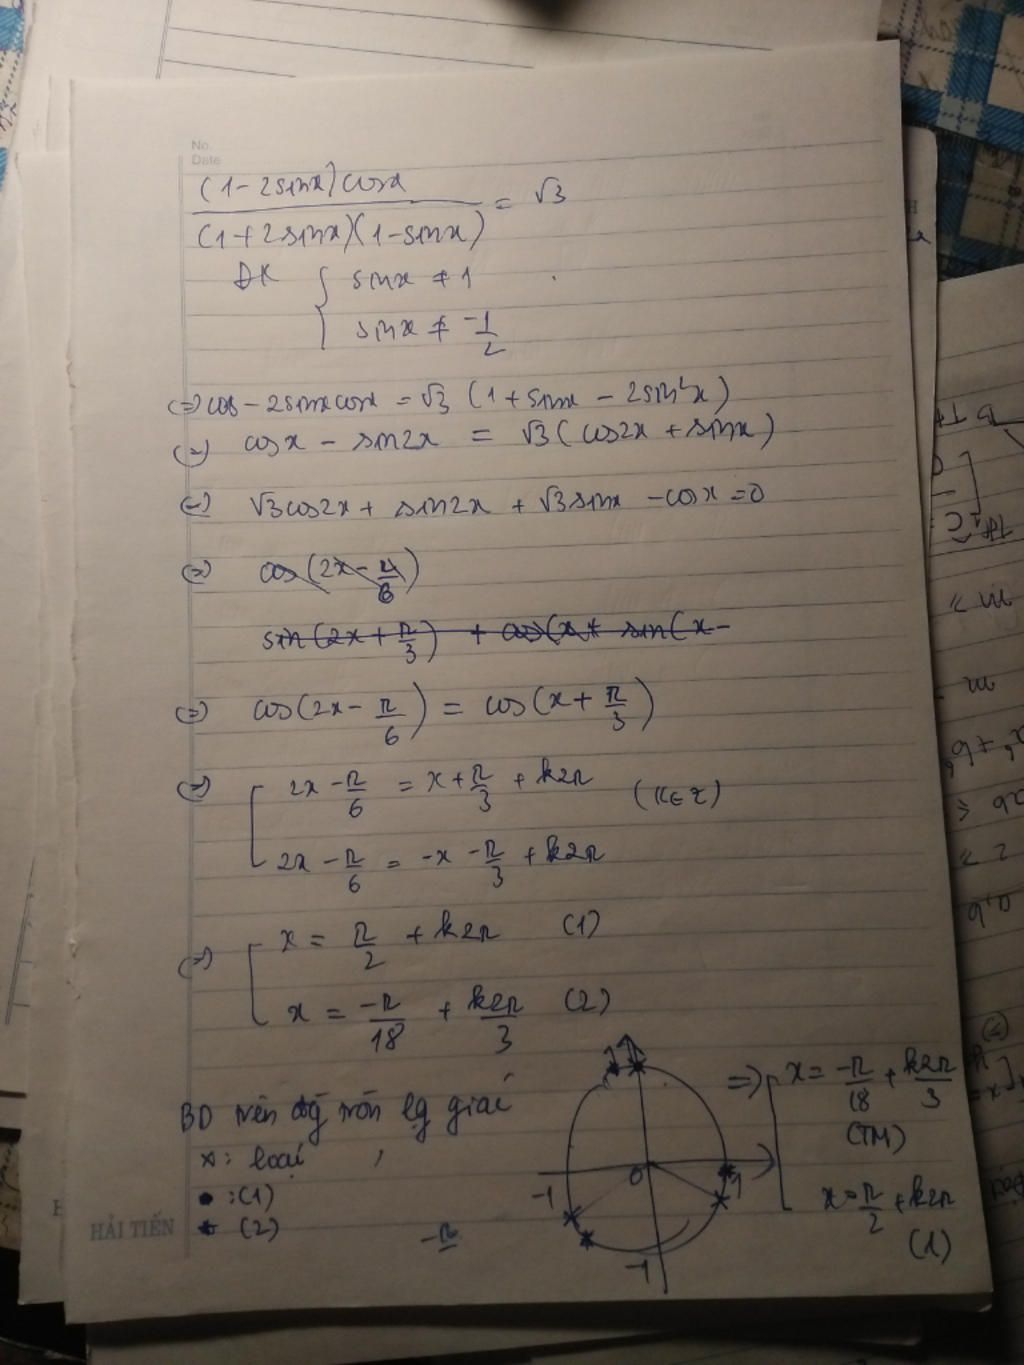 No.
Date
(1-2sinx)cosx / (1+2sinx)(1-sinx) = √3
ĐK { sinx ≠ 1
sinx ≠ -1/2
(=) cos - 2sinxcosx = √3 (1+sinx - 2sin²x)
(=) cosx - sin2x = √3(cos2x + sinx)
(=) √3cos2x + sin2x + √3sinx - cosx = 0
(=) cos(2x - π/6)
sin(2x + π/3) + cos(x + sin(x -
(=) cos(2x - π/6) = cos(x + π/3)
(=) [ 2x - π/6 = x + π/3 + k2π (k∈Z)
2x - π/6 = -x - π/3 + k2π
(=) [ x = π/2 + k2π (1)
x = -π/18 + k2π/3 (2)
BD trên đg tròn lg giác
x: loại
• : (1)
* (2)
-π
O
-1
1
-1
=) [ x = -π/18 + k2π/3
(TM)
x = π/2 + k2π
(1)
HẢI TIẾN